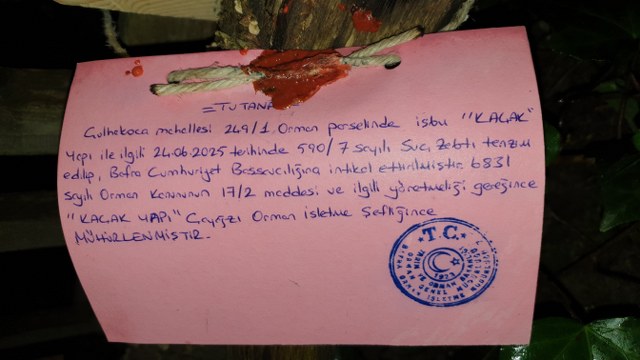 =TUTANA
Gulhekoca mahellesi 249/1 Orman parselinde işbu "KAÇAK"
Yapı ile ilgili 24.06.2025 tarihinde 590/7 sayılı Suç Zabtı tanzim
edilip, Bafra Cumhuriyet Bassavcılığına intikal ettirilmiştir. 6831
sayılı Orman Kanununun 17/2 maddesi ve ilgili yönetmeliği gereğince
"KAÇAK YAPI" Orman işletme Şefliğince
MÜHÜRLENMİŞTİR.
T.C.